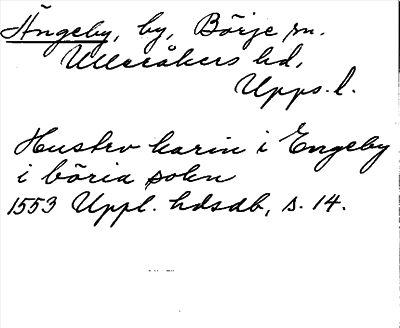 Ängeby, by, Börje sn.
Ulleråkers hd,
Upps. l.
Hustrv karin i Engeby
iböria sokn
1553 Uppl. hdsdb, s. 14.